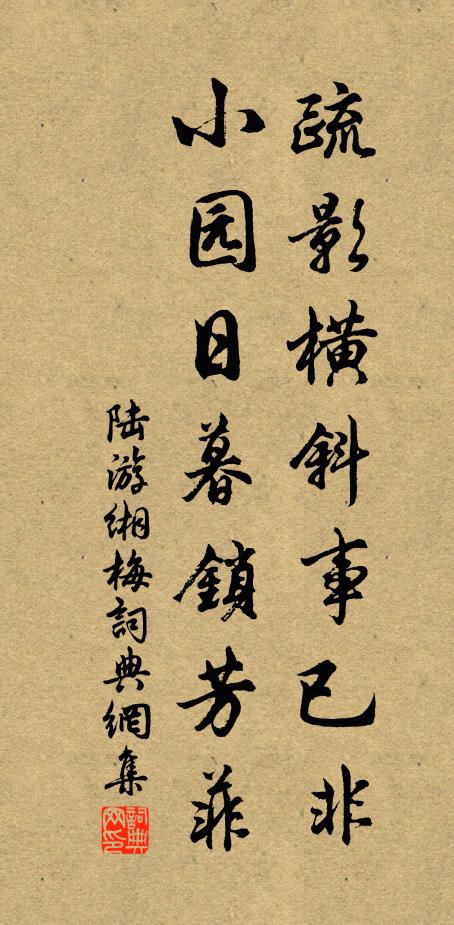 疏影横斜事已非
小园日暮鎖芳菲
陆游缃梅詞典網集
詞典網印